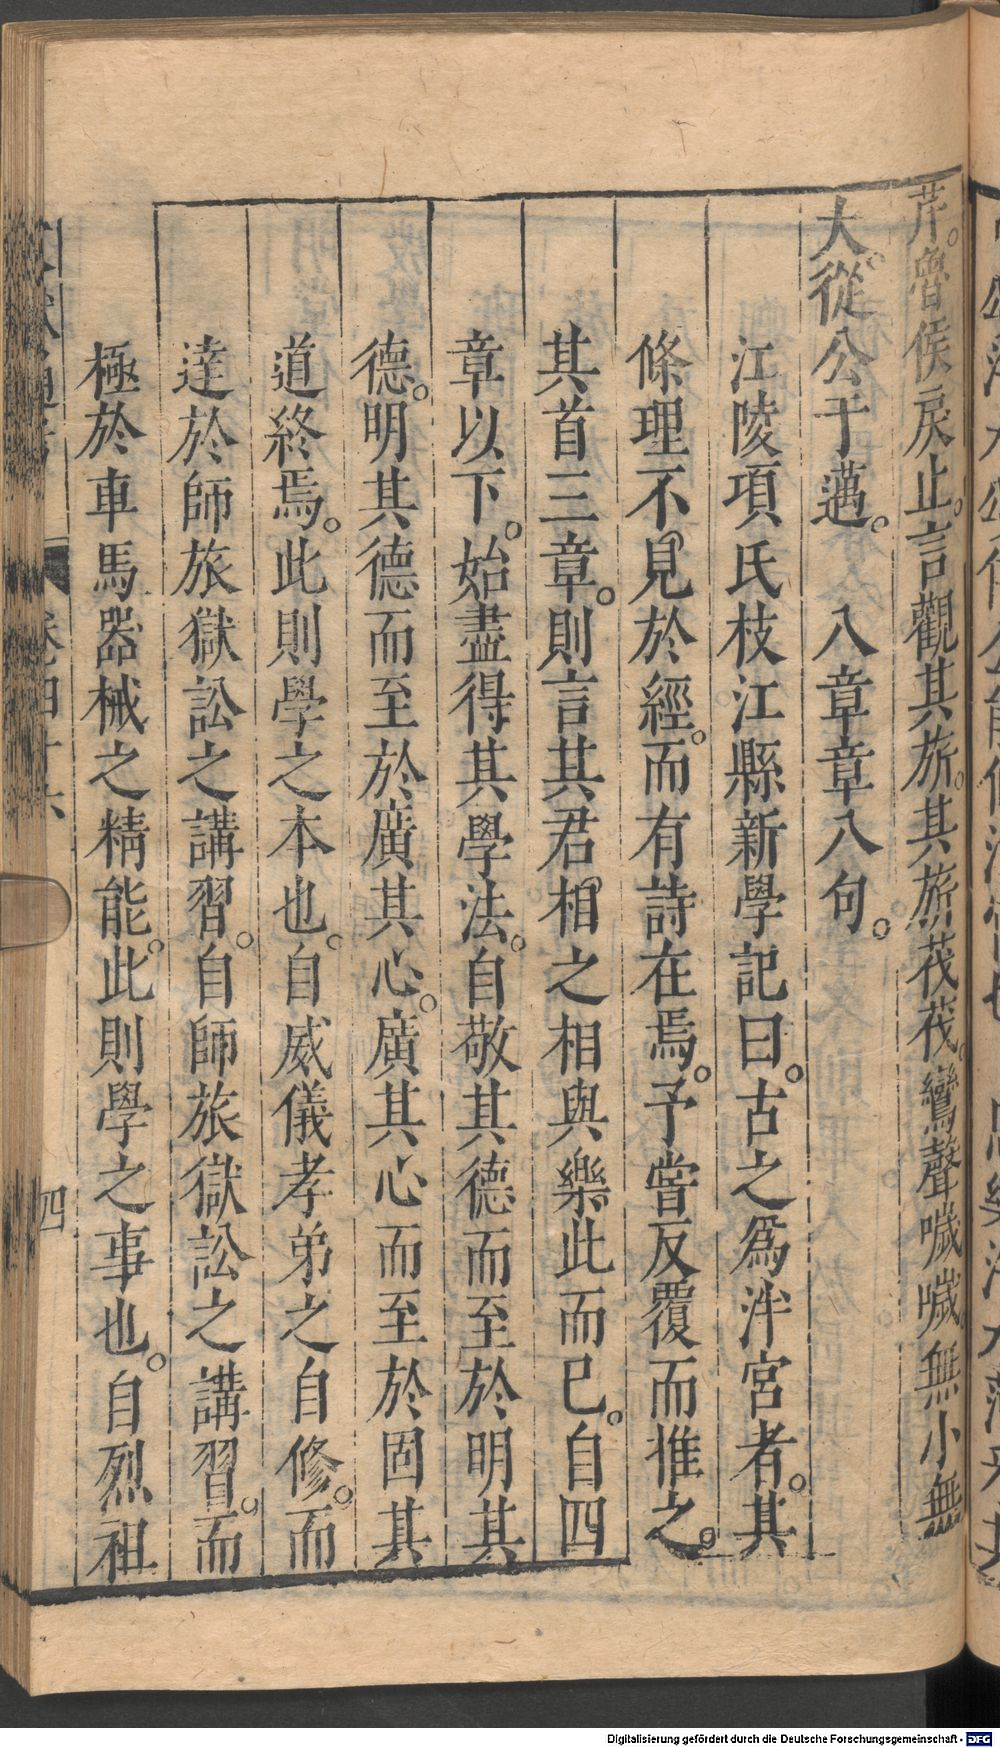 芹。魯侯戾止。言觀其旂。其旂茷茷。鸞聲噦噦。無小無
大。從公于邁。　八章章八句。
江陵項氏枝江縣新學記曰。古之爲泮宮者。其
條理不見於經。而有詩在焉。予嘗反覆而推之。
其首三章。則言其君相之相與樂此而已。自四
章以下。始盡得其學法。自敬其德而至於明其
德。明其德而至於廣其心。廣其心而至於固其
道終焉。此則學之本也。自威儀孝弟之自修。而
達於師旅獄訟之講習。自師旅獄訟之講習。而
極於車馬器械之精能。此則學之事也。自烈祖
四
Digitalisierung gefördert durch die Deutsche Forschungsgemeinschaft - DFG